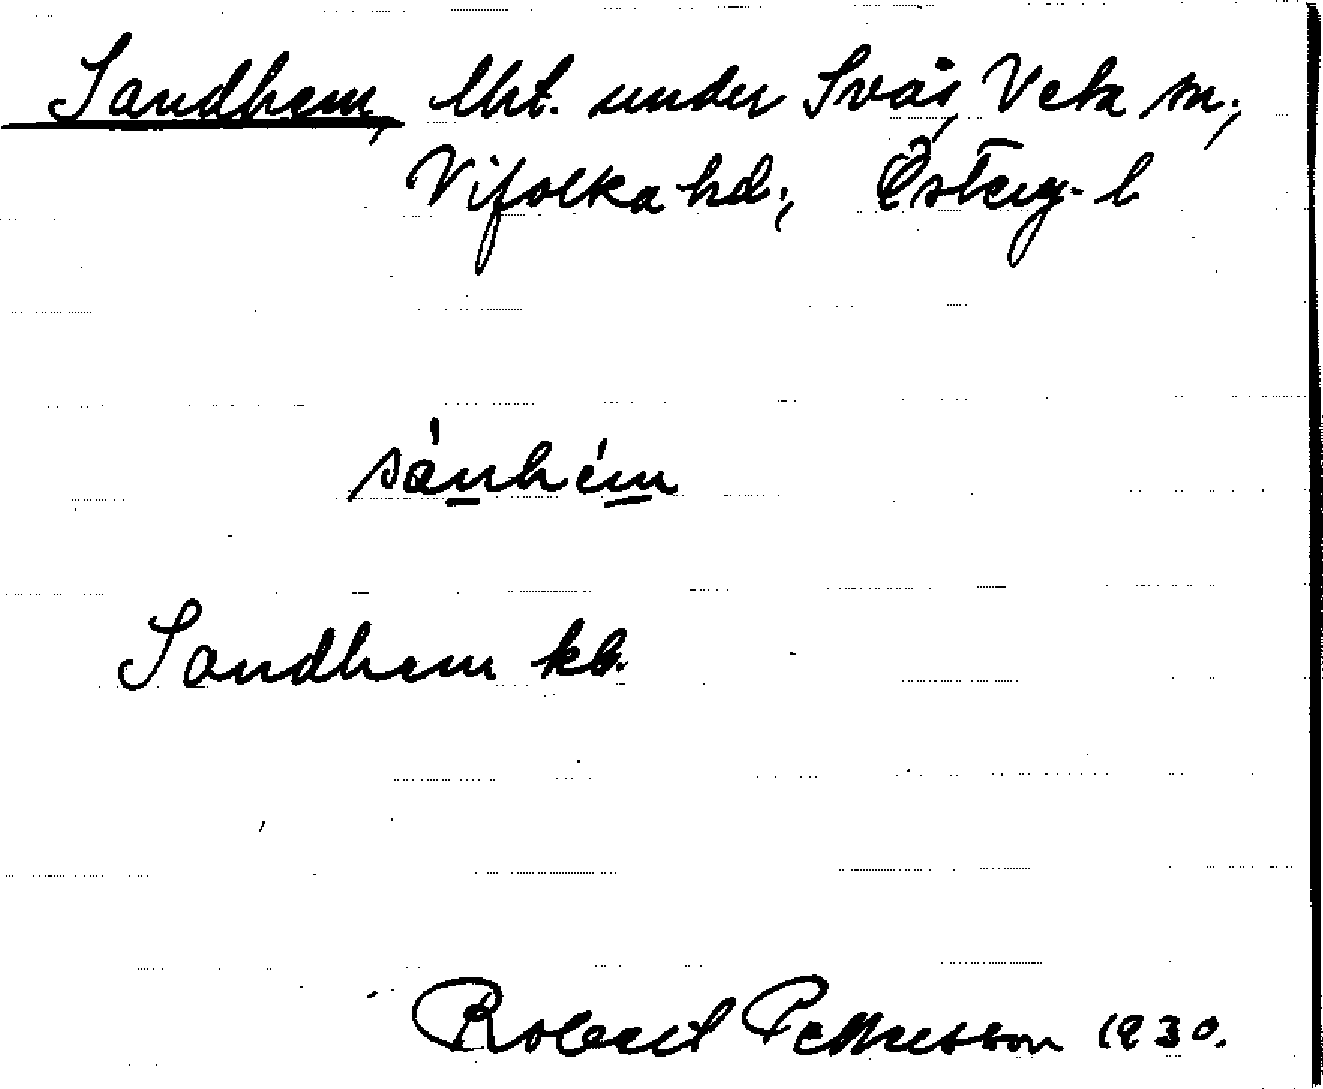 Sandhem, lht. under Svås, Veta sn.,
Vifolka hd., Österg. l
sánhém
Sandhem kb.
Robert Pettersson 1930.